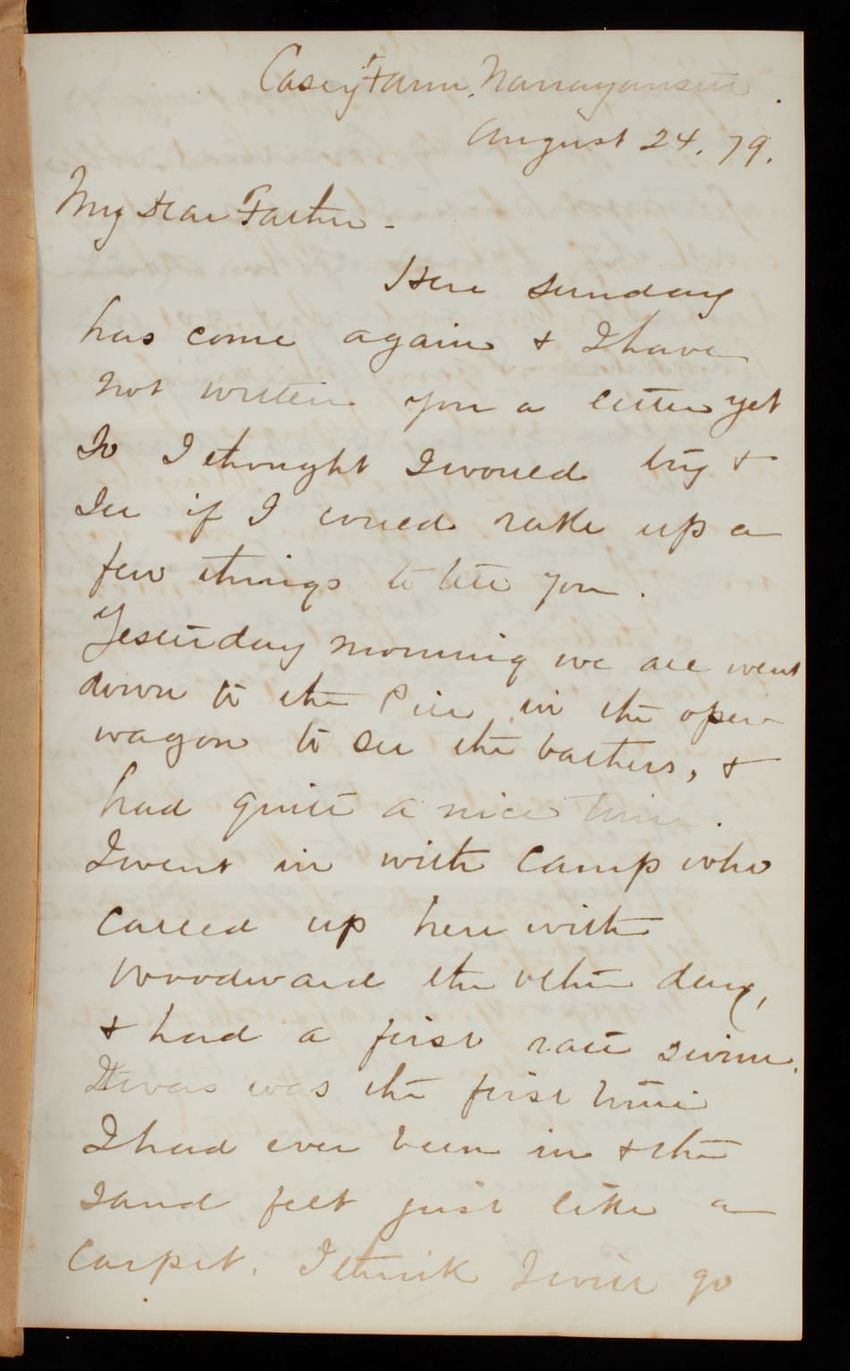 Casey Farm, Narragansett.
August 24. 79.
My Dear Father -
Here Sunday
has come again & I have
not written you a letter yet
So I thought I would try &
See if I could rake up a
few things to tell you.
Yesterday morning we all went
down to the Pier in the open
wagon to see the bathers, &
had quite a nice time.
I went in with Camp who
called up here with
Woodward the other day,
& had a first rate swim.
It was was the first time
I had ever been in & the
sand felt just like a
carpet. I think I will go